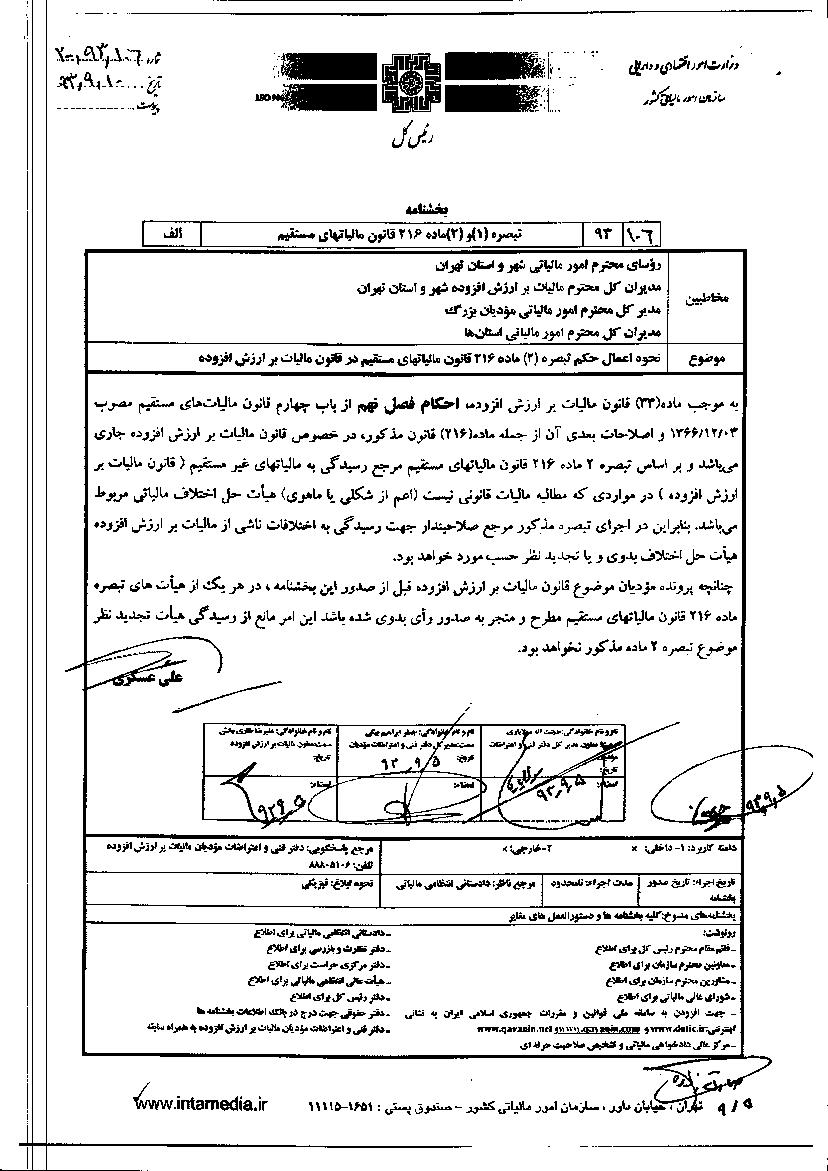 وزارت امور اقتصادی و دارایی
سازمان امور مالیاتی کشور
شماره: ۲۰۰٫۹۳٫۱۰۶
تاریخ: ۹۳٫۹٫۱۰
پیوست:
رئیس کل
بخشنامه
۱۰۶ ۹۳ تبصره (۱)و (۲)ماده ۲۱۶ قانون مالیاتهای مستقیم الف
مخاطبین
رؤسای محترم امور مالیاتی شهر و استان تهران
مدیران کل محترم مالیات بر ارزش افزوده شهر و استان تهران
مدیر کل محترم امور مالیاتی مؤدیان بزرگ
مدیران کل محترم امور مالیاتی استان‌ها
موضوع نحوه اعمال حکم تبصره (۲) ماده ۲۱۶ قانون مالیاتهای مستقیم در قانون مالیات بر ارزش افزوده
به موجب ماده(۳۳) قانون مالیات بر ارزش افزوده، احکام فصل نهم از باب چهارم قانون مالیات‌های مستقیم مصوب
۱۳۶۶/۱۲/۰۳ و اصلاحات بعدی آن از جمله ماده(۲۱۶) قانون مذکور، در خصوص قانون مالیات بر ارزش افزوده جاری
می‌باشد و بر اساس تبصره ۲ ماده ۲۱۶ قانون مالیاتهای مستقیم مرجع رسیدگی به مالیاتهای غیر مستقیم ( قانون مالیات بر
ارزش افزوده ) در مواردی که مطالبه مالیات قانونی نیست (اعم از شکلی یا ماهوی) هیأت حل اختلاف مالیاتی مربوط
می‌باشد. بنابراین در اجرای تبصره مذکور مرجع صلاحیتدار جهت رسیدگی به اختلافات ناشی از مالیات بر ارزش افزوده
هیأت حل اختلاف بدوی و یا تجدید نظر حسب مورد خواهد بود.
چنانچه پرونده مؤدیان موضوع قانون مالیات بر ارزش افزوده قبل از صدور این بخشنامه ، در هر یک از هیأت های تبصره
ماده ۲۱۶ قانون مالیاتهای مستقیم مطرح و منجر به صدور رأی بدوی شده باشد این امر مانع از رسیدگی هیأت تجدید نظر
موضوع تبصره ۲ ماده مذکور نخواهد بود.
علی عسکری
نام و نام خانوادگی:
معاون مدیر کل دفتر فنی و اعتراضات
تاریخ:
امضاء:
۹۳٫۹٫۵
نام و نام خانوادگی: جعفر ابراهیم بیگی
سمت:مدیر کل دفتر فنی و اعتراضات مؤدیان
تاریخ: ۹۳٫۹٫۵
امضاء:
نام و نام خانوادگی: علیرضا طاری بخش
سمت:معاون مالیات بر ارزش افزوده
تاریخ:
امضاء:
۹۳٫۹٫۵
۹۳٫۹٫۵
دامنه کاربرد: ۱- داخلی: × ۲-خارجی: ×
مرجع پاسخگویی: دفتر فنی و اعتراضات مؤدیان مالیات بر ارزش افزوده
تلفن: ۸۸۸۰۵۱۰۶
تاریخ اجراء: تاریخ صدور بخشنامه
مدت اجراء: نامحدود
مرجع ناظر: دادستانی انتظامی مالیاتی
نحوه ابلاغ: فیزیکی
بخشنامه‌های منسوخ: کلیه بخشنامه ها و دستورالعمل های مغایر
رونوشت:
- قائم مقام محترم رئیس کل برای اطلاع
- معاونین محترم سازمان برای اطلاع
- مشاورین محترم سازمان برای اطلاع
- شورای عالی مالیاتی برای اطلاع
- جهت افزودن به سامانه ملی قوانین و مقررات جمهوری اسلامی ایران به نشانی
اینترنتی: www.dotic.ir و www.qavanin.com و www.qavanin.net
- مرکز عالی دادخواهی مالیاتی و تشخیص صلاحیت حرفه ای
- دادستانی انتظامی مالیاتی برای اطلاع
- دفتر نظارت و بازرسی برای اطلاع
- دفتر مرکزی حراست برای اطلاع
- هیأت عالی انتظامی مالیاتی برای اطلاع
- دفتر رئیس کل برای اطلاع
- دفتر حقوقی جهت درج در بانک اطلاعات بخشنامه ها
- دفتر فنی و اعتراضات مؤدیان مالیات بر ارزش افزوده به همراه سابقه
۹/۵
تهران ، خیابان داور ، سازمان امور مالیاتی کشور - صندوق پستی : ۱۶۵۱-۱۱۱۱۵
www.intamedia.ir